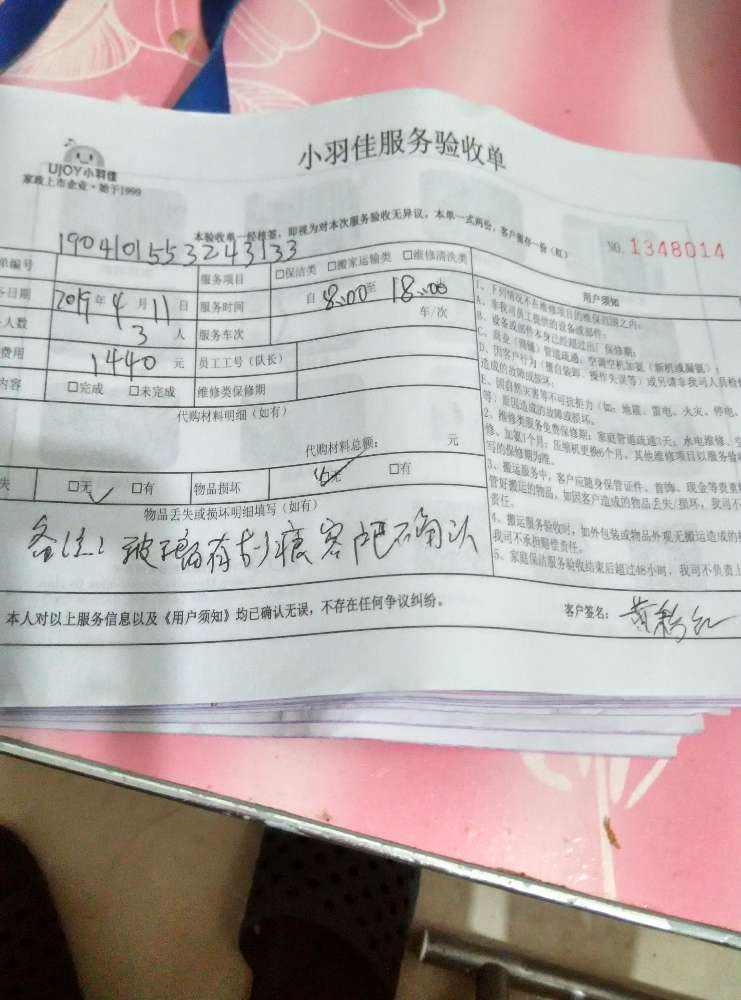 小羽佳服务验收单
UJOY小羽佳
家政上市企业·始于1999
本验收单一经核签，即视为对本次服务验收无异议。本单一式两份，客户留存一份（红）
NO. 1348014
单编号 190401553243133 服务项目 □保洁类 □搬家运输类 □维修清洗类
务日期 2019年4月11日 服务时间 自 8:00 至 18:00
人数 3 人 服务车次 车/次
费用 1440 元 员工工号（队长）
内容 □完成 □未完成 维修类保修期
代购材料明细（如有）
代购材料总额： 元
失 □无 □有 物品损坏 □无 □有
物品丢失或损坏明细填写（如有）
备注：玻璃有刮痕客户已确认
本人对以上服务信息以及《用户须知》均已确认无误，不存在任何争议纠纷。
客户签名：
用户须知
1、下列情况不在维修项目的维保范围之内：
A、非我司员工提供的设备或部件；
B、设备或部件本身已经超过出厂保修期；
C、商业（商铺）管道疏通、空调空机加氨（新机或漏氨）；
D、因客户行为（擅自装卸、操作失误等）或另请非我司人员检修
造成的故障或损坏；
E、因自然灾害等不可抗拒力（如：地震、雷电、火灾、停电、
等）原因造成的故障或损坏。
2、维修类服务免费保修期：家庭管道疏通3天；水电维修、空
修、加氨1个月；压缩机更换6个月，其他维修项目以服务验收
写的保修期为准。
3、搬运服务中，客户应随身保管证件、首饰、现金等贵重
管好搬运的物品，如因客户造成的物品丢失/损坏，我司不
责任。
4、搬运服务验收时，如外包装或物品外观无搬运造成的
我司不承担赔偿责任。
5、家庭保洁服务验收结束后超过48小时，我司不负责上